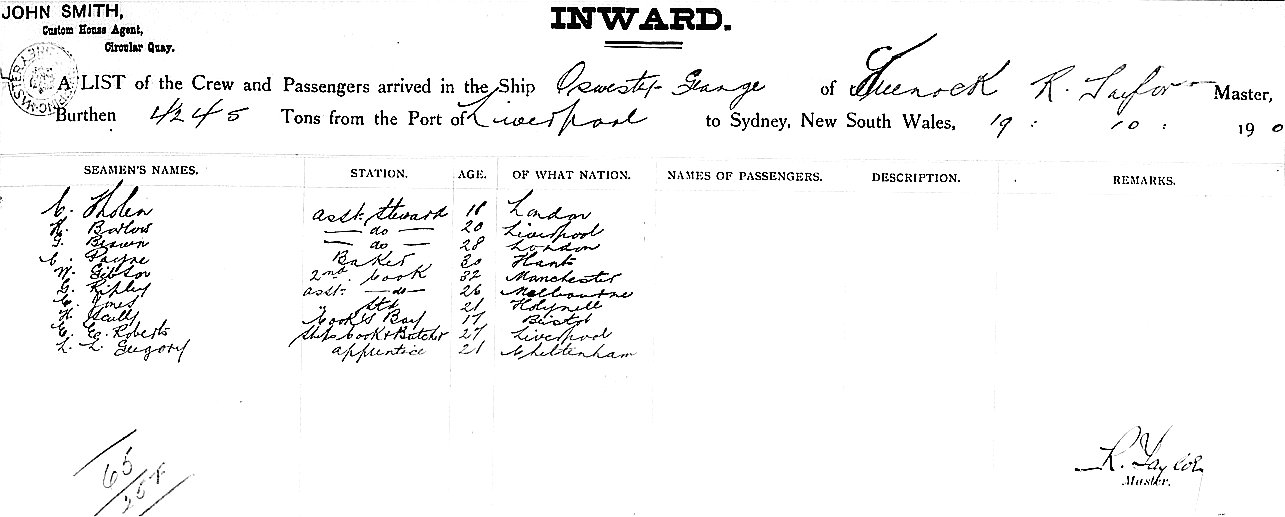 JOHN SMITH,
Custom House Agent,
Circular Quay.
INWARD.
A LIST of the Crew and Passengers arrived in the Ship Oswestry Grange of Greenock R. Taylor Master,
Burthen 4245 Tons from the Port of Liverpool to Sydney, New South Wales, 19 : 10 : 190
SEAMEN'S NAMES. STATION. AGE. OF WHAT NATION. NAMES OF PASSENGERS. DESCRIPTION. REMARKS.
C. Tholen asst. Steward 18 London
H. Barlow — do — 20 Liverpool
Brown — do — 28 London
C. Payne Baker 30 Hants
W. Gibson 2nd. Cook 32 Manchester
Ripley asst. — do — 26 Melbourne
C. Jones 21
H. Scully Cook's Boy 17 Bristol
Roberts Ships Cook & Butcher 27 Liverpool
L. L. Gregory apprentice 21 Cheltenham
65
R. Taylor
Master.